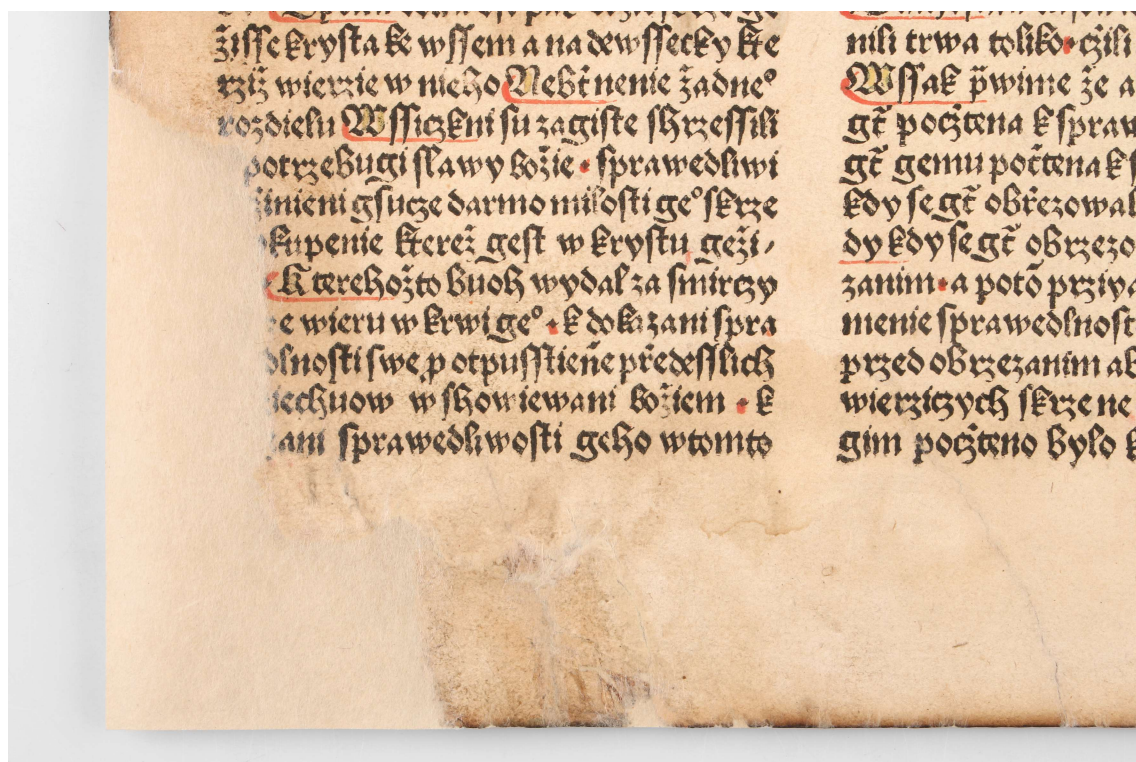 žisse krysta ke wssem a na dewssecky kte
rziž wierzie w nieho Nebt nenie žadne°
rozdielu Wssiczkni su zagiste shrzessili
potrzebugi slawy božie · sprawedliwi
žinieni gsucze darmo milosti ge° skrze
kupenie kterež gest w krystu geži/
Kterehožto buoh wydal za smirczy
e wieru w krwi ge° · k dokazani spra
dlnosti swe p otpusstieňe předesslich
iechuow w showiewani božiem · k
zani sprawedliwosti geho wtomto
nili trwa toliko · čzili
Wssak p̃wime že a
gt̃ počztena k spraw
gt̃ gemu počtena k s
kdy se gt̃ obřezowal
dy kdy se gt̃ obrzezo
zanim · a potõ prziya
menie sprawedlnost
przed obrzezanim ab
wierziczych skrze ne
gim počzteno bylo k